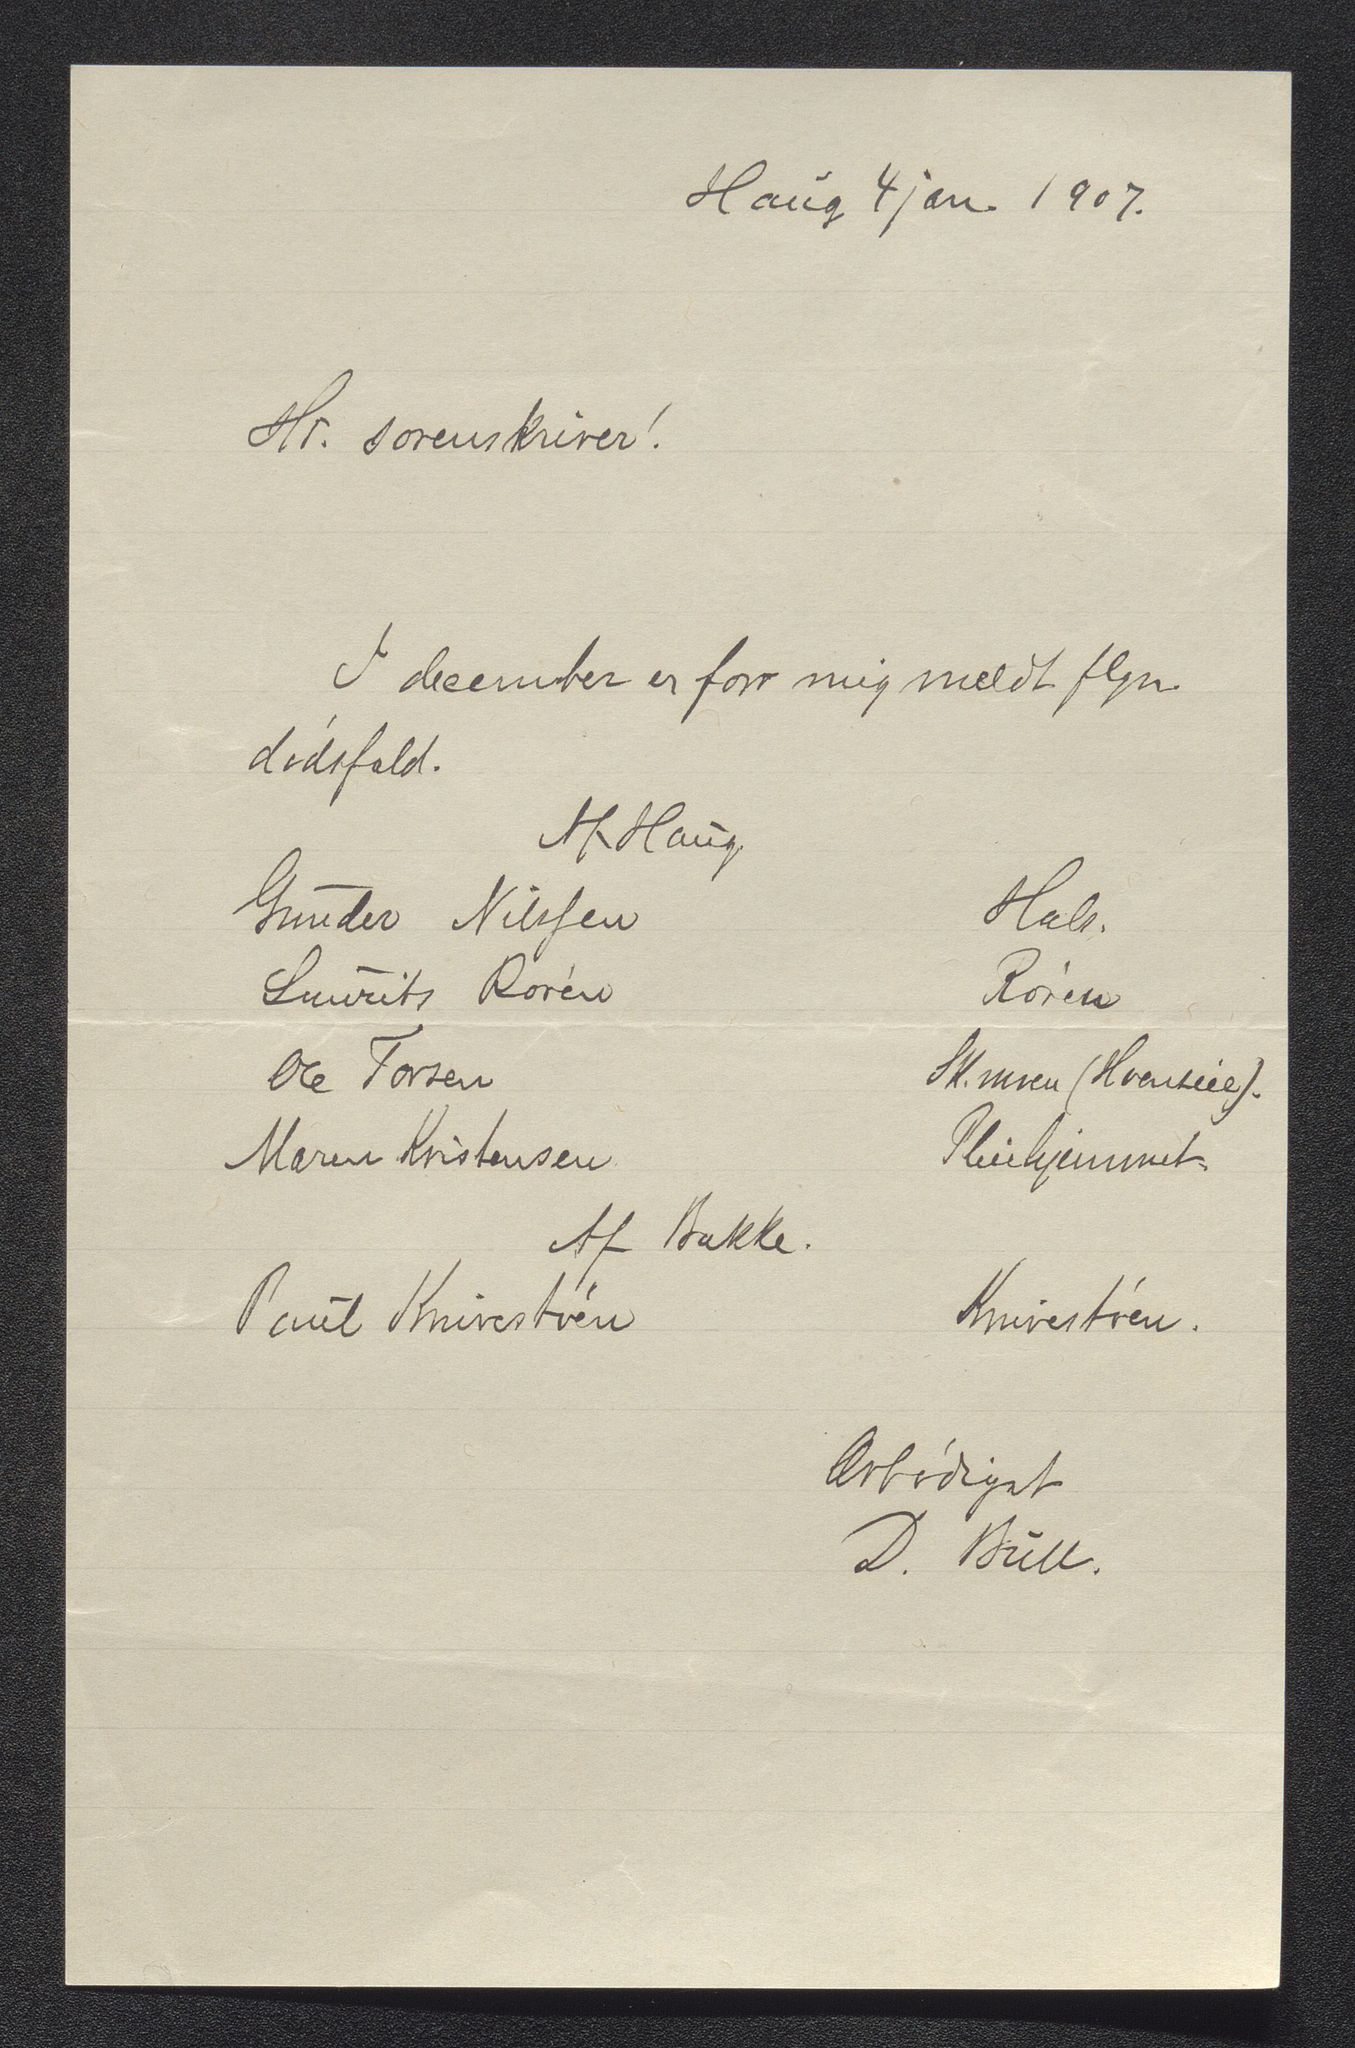 Haug 4 jan. 1907.
Hr. sorenskriver!
I december er for mig meldt flgn.
dødsfald.
Af Haug.
Gunder Nilssen Hals.
Laurits Rørén Rørén
Ole Torsen (Hvenseie).
Maren Kristensen Pleiehjemmet.
Af Bakke.
Paul Knivestøén Knivestøen.
Ærbødigst
D. Bull.